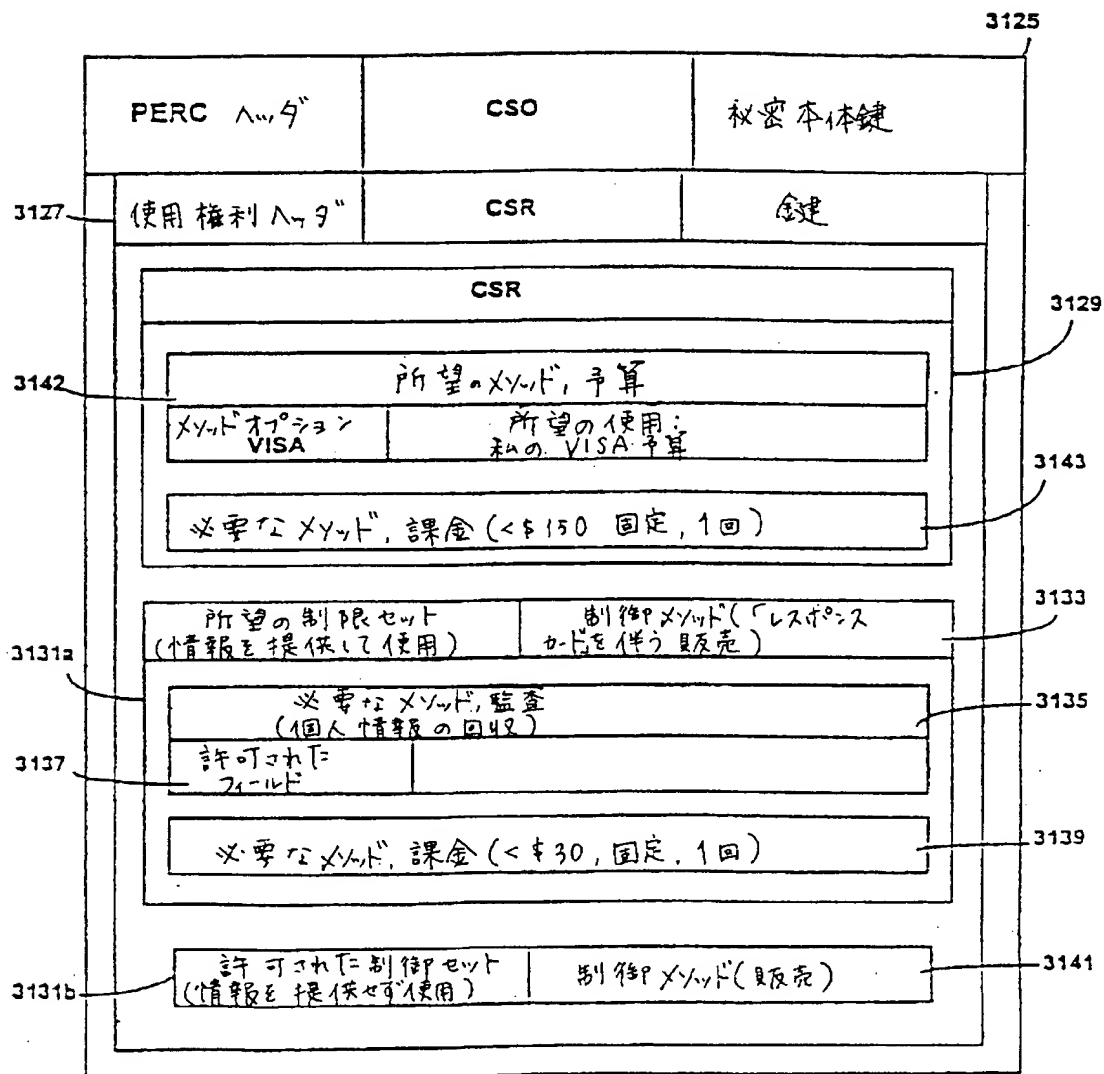 3125
PERC ヘッダ
CSO
秘密本体鍵
3127
使用権利ヘッダ
CSR
鍵
CSR
3129
3142
所望のメソッド, 予算
メソッドオプション
VISA
所望の使用:
私の VISA 予算
3143
必要なメソッド, 課金 (<$150 固定, 1回)
3133
所望の制限セット
(情報を提供して使用)
制御メソッド(「レスポンス
カード」を伴う販売)
3131a
必要なメソッド, 監査
(個人情報の回収)
3135
3137
許可された
フィールド
必要なメソッド, 課金 (<$30, 固定, 1回)
3139
許可された制御セット
(情報を提供せず使用)
制御メソッド(販売)
3141
3131b